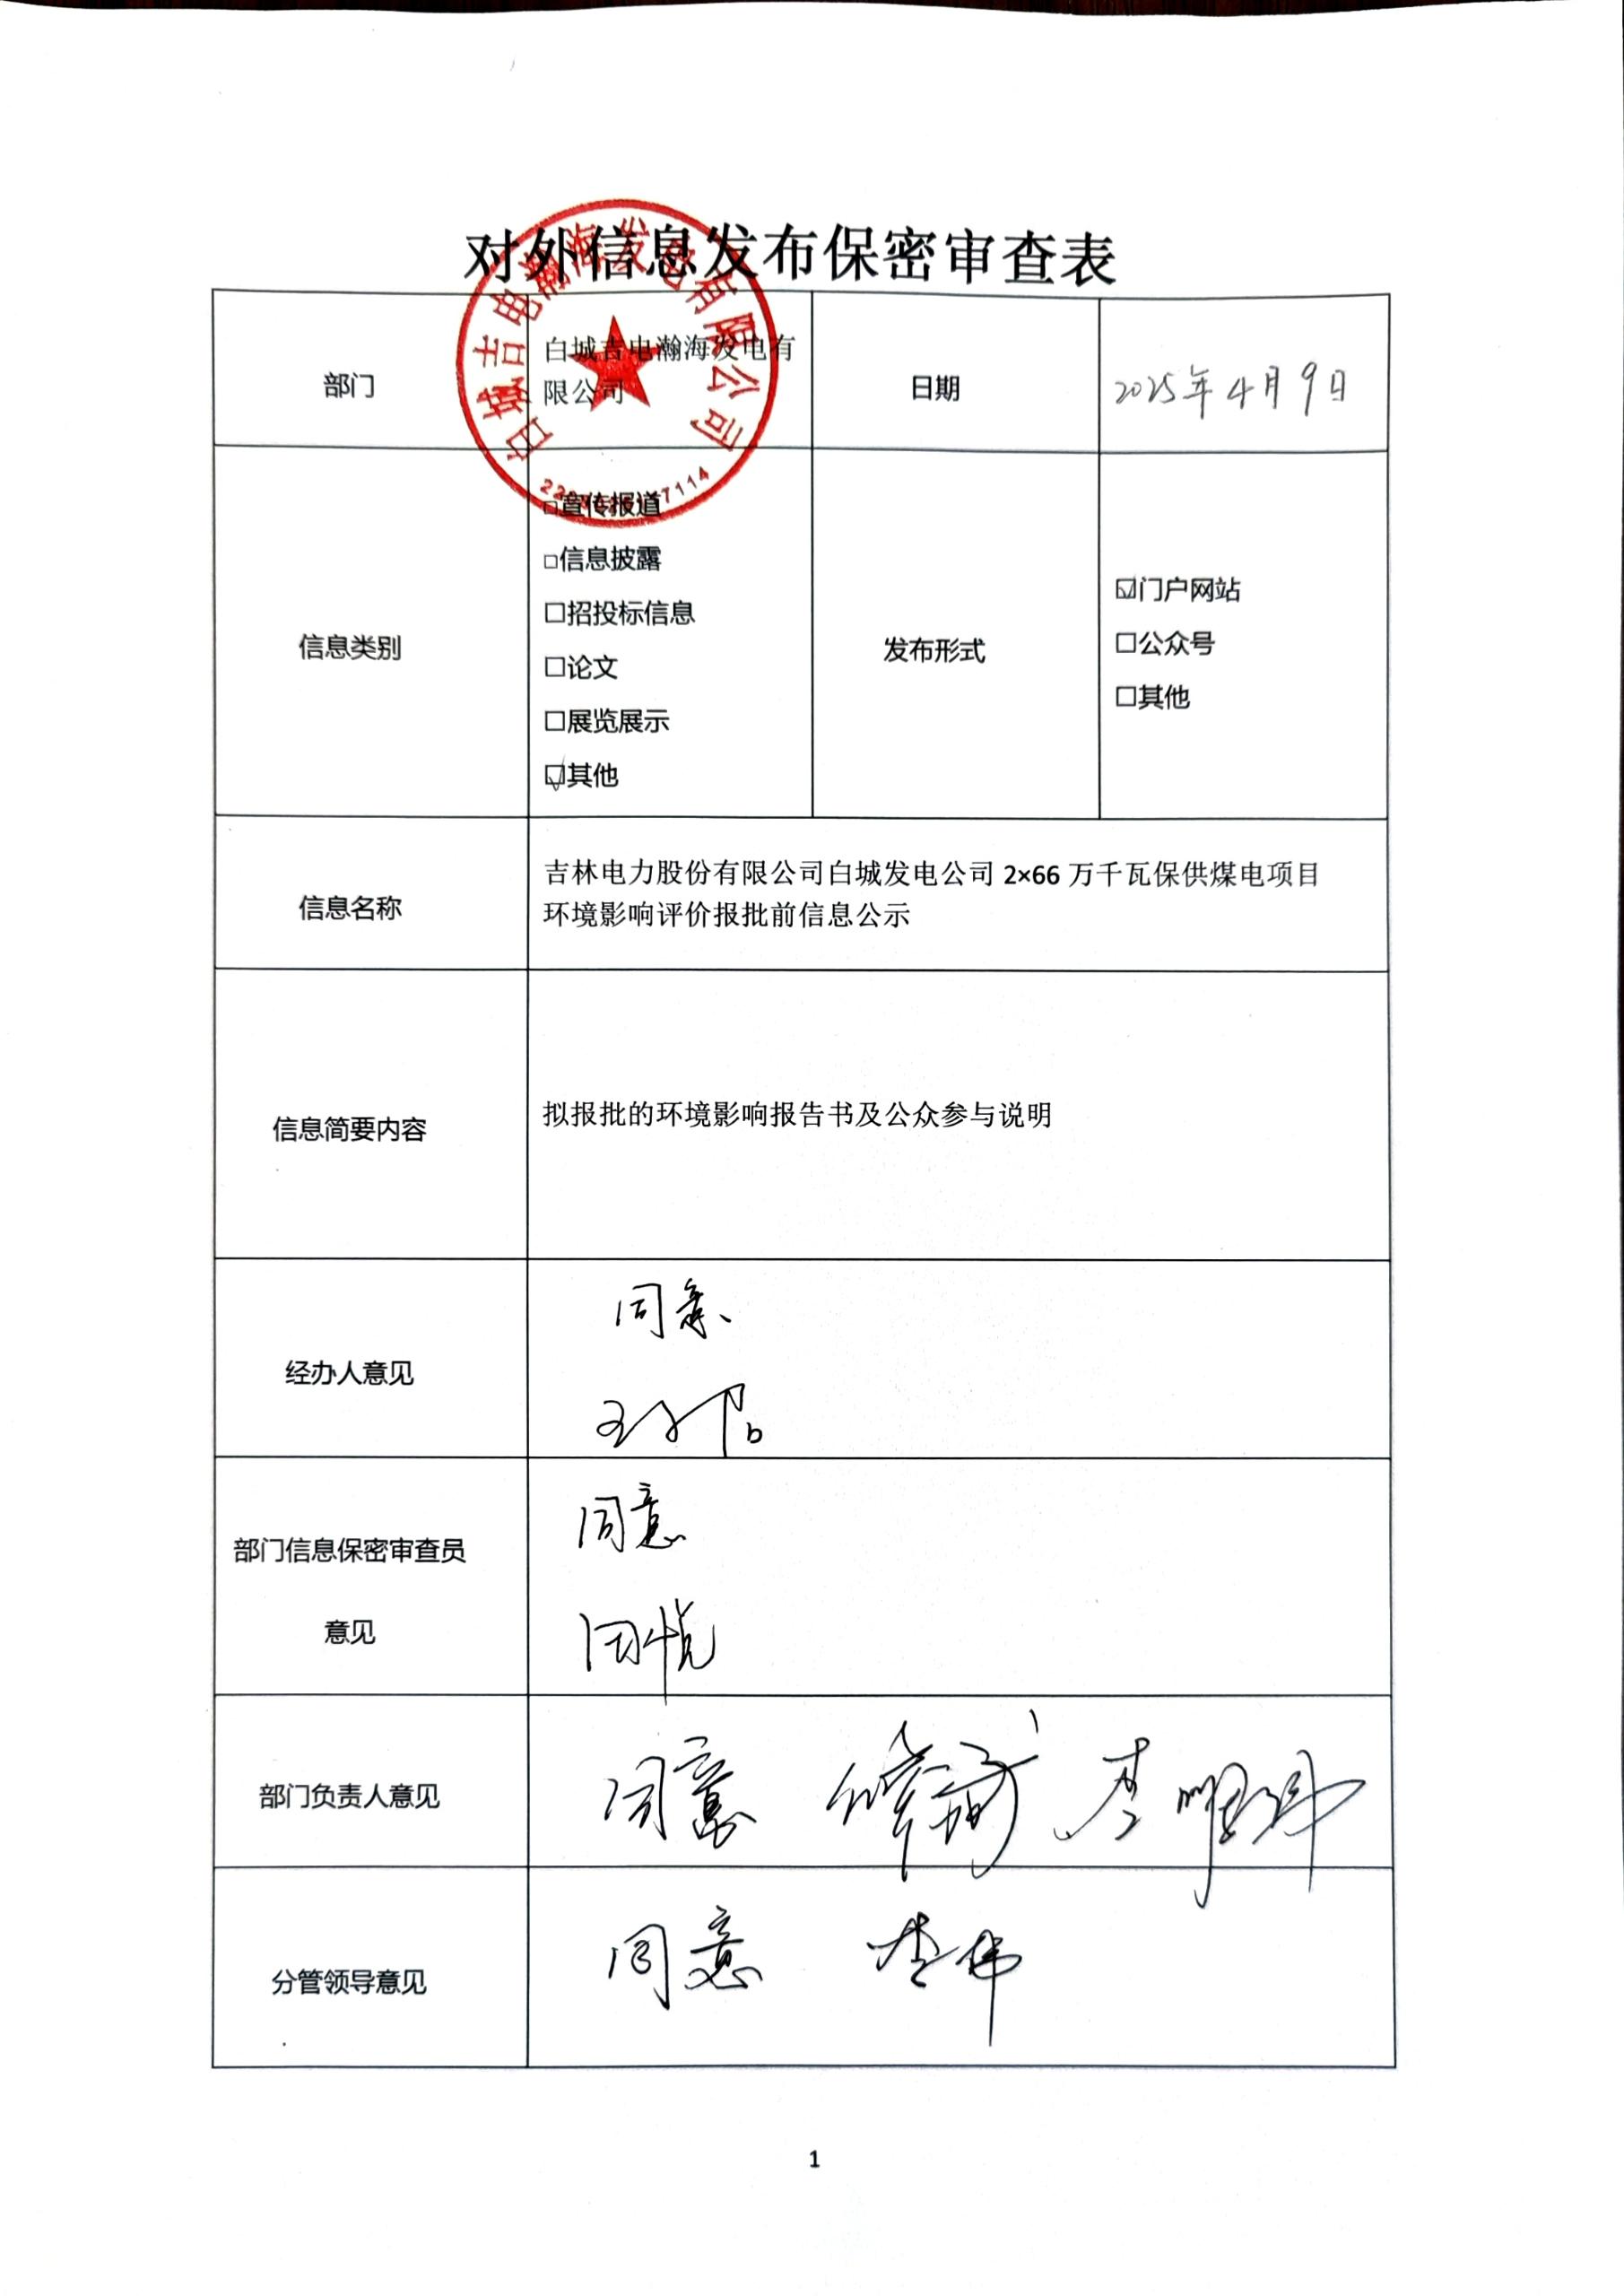 对外信息发布保密审查表
白城吉电瀚海发电有限公司
部门
白城吉电瀚海发电有
限公司
日期
2025年4月9日
信息类别
□宣传报道
□信息披露
□招投标信息
□论文
□展览展示
☑其他
发布形式
☑门户网站
□公众号
□其他
信息名称
吉林电力股份有限公司白城发电公司 2×66 万千瓦保供煤电项目
环境影响评价报批前信息公示
信息简要内容
拟报批的环境影响报告书及公众参与说明
经办人意见
同意
部门信息保密审查员
意见
同意
部门负责人意见
同意
分管领导意见
同意 李伟
1